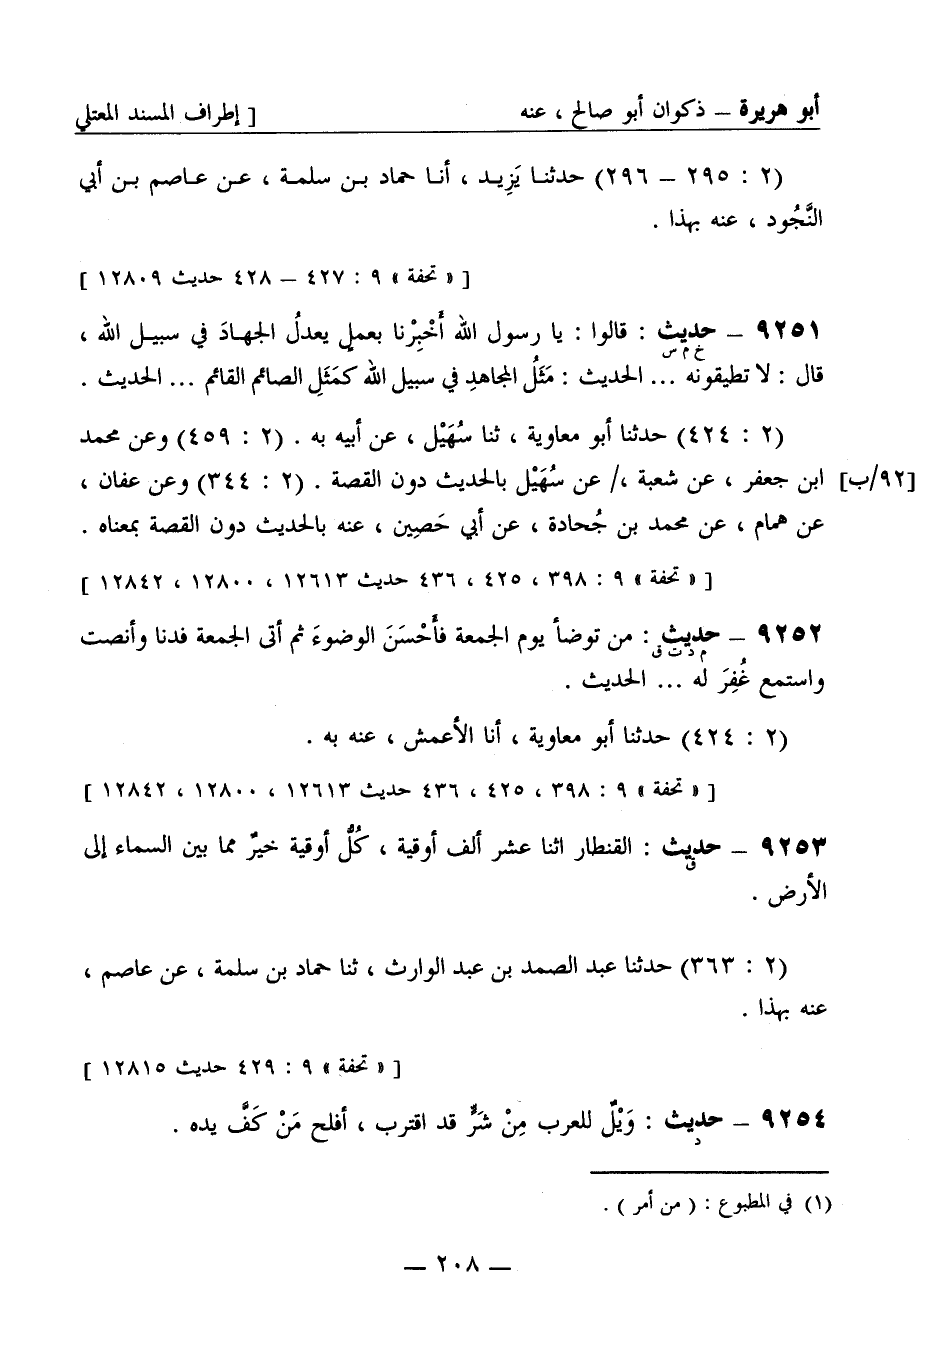 أبو هريرة – ذكوان أبو صالح ، عنه [ إطراف المسند المعتلي
(٢ : ٢٩٥ – ٢٩٦) حدثنا يَزِيد ، أنا حماد بن سلمة ، عن عاصم بن أبي
النَّجُود ، عنه بهذا .
[ « تحفة » ٩ : ٤٢٧ – ٤٢٨ حديث ١٢٨٠٩ ]
٩٢٥١ – حديث : قالوا : يا رسول الله أَخْبِرْنا بعملٍ يعدلُ الجهادَ في سبيل الله ،
خ م س
قال : لا تطيقونه ... الحديث : مَثَلُ المجاهدِ في سبيل الله كمَثَلِ الصائم القائم ... الحديث .
(٢ : ٤٢٤) حدثنا أبو معاوية ، ثنا سُهَيْل ، عن أبيه به . (٢ : ٤٥٩) وعن محمد
[٩٢/ب] ابن جعفر ، عن شعبة ،/ عن سُهَيْل بالحديث دون القصة . (٢ : ٣٤٤) وعن عفان ،
عن همام ، عن محمد بن جُحادة ، عن أبي حَصِين ، عنه بالحديث دون القصة بمعناه .
[ « تحفة » ٩ : ٣٩٨ ، ٤٢٥ ، ٤٣٦ حديث ١٢٦١٣ ، ١٢٨٠٠ ، ١٢٨٤٢ ]
٩٢٥٢ – حديث : من توضأ يوم الجمعة فأَحْسَنَ الوضوءَ ثم أتى الجمعة فدنا وأنصت
م د ت ق
واستمع غُفِرَ له ... الحديث .
(٢ : ٤٢٤) حدثنا أبو معاوية ، أنا الأعمش ، عنه به .
[ « تحفة » ٩ : ٣٩٨ ، ٤٢٥ ، ٤٣٦ حديث ١٢٦١٣ ، ١٢٨٠٠ ، ١٢٨٤٢ ]
٩٢٥٣ – حديث : القنطار اثنا عشر ألف أوقية ، كُلُّ أوقية خيرٌ مما بين السماء إلى
ق
الأرض .
(٢ : ٣٦٣) حدثنا عبد الصمد بن عبد الوارث ، ثنا حماد بن سلمة ، عن عاصم ،
عنه بهذا .
[ « تحفة » ٩ : ٤٢٩ حديث ١٢٨١٥ ]
٩٢٥٤ – حديث : وَيْلٌ للعرب مِنْ شَرٍّ قد اقترب ، أفلح مَنْ كَفَّ يده .
د
(١) في المطبوع : ( من أمر ) .
– ٢٠٨ –